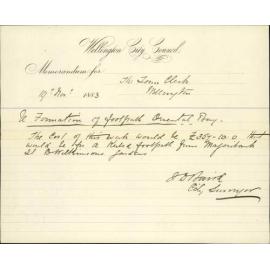 Wellington City Council.
Memorandum for
The Town Clerk
Wellington
19th Novr 1883
Re Formation of footpath Oriental Bay.
The Cost of this work would be £354-10.0
would be for a footpath from Majoribank
St to Wilkinsons Gardens
City Surveyor